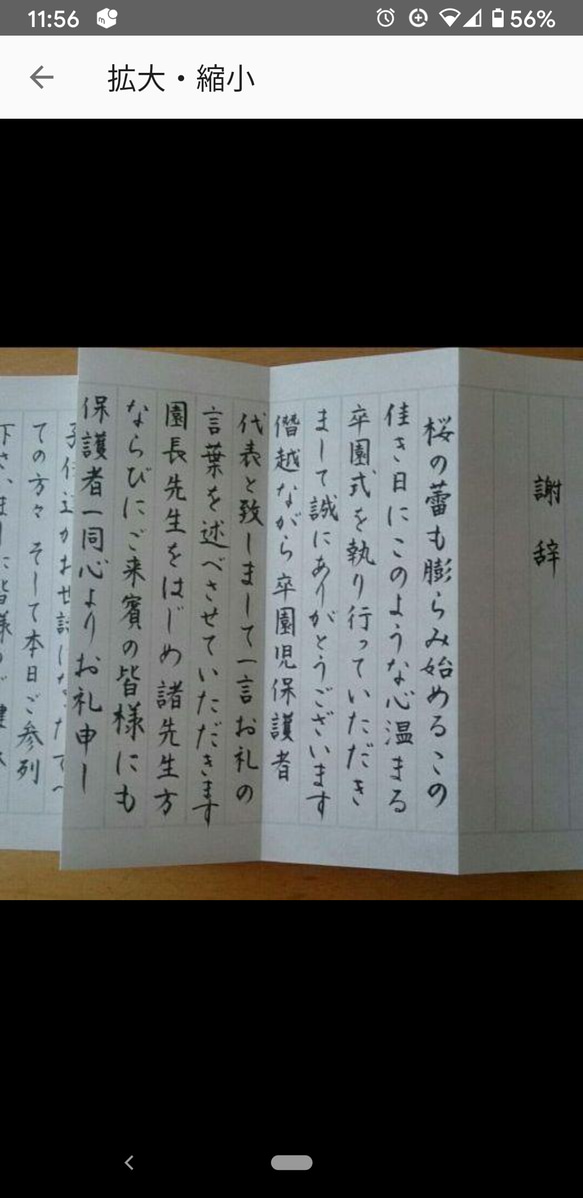 11:56
56%
拡大・縮小
謝辞
桜の蕾も膨らみ始めるこの
佳き日にこのような心温まる
卒園式を執り行っていただき
まして誠にありがとうございます
僭越ながら卒園児保護者
代表と致しまして一言お礼の
言葉を述べさせていただきます
園長先生をはじめ諸先生方
ならびにご来賓の皆様にも
保護者一同心よりお礼申し
ての方々そして本日ご参列